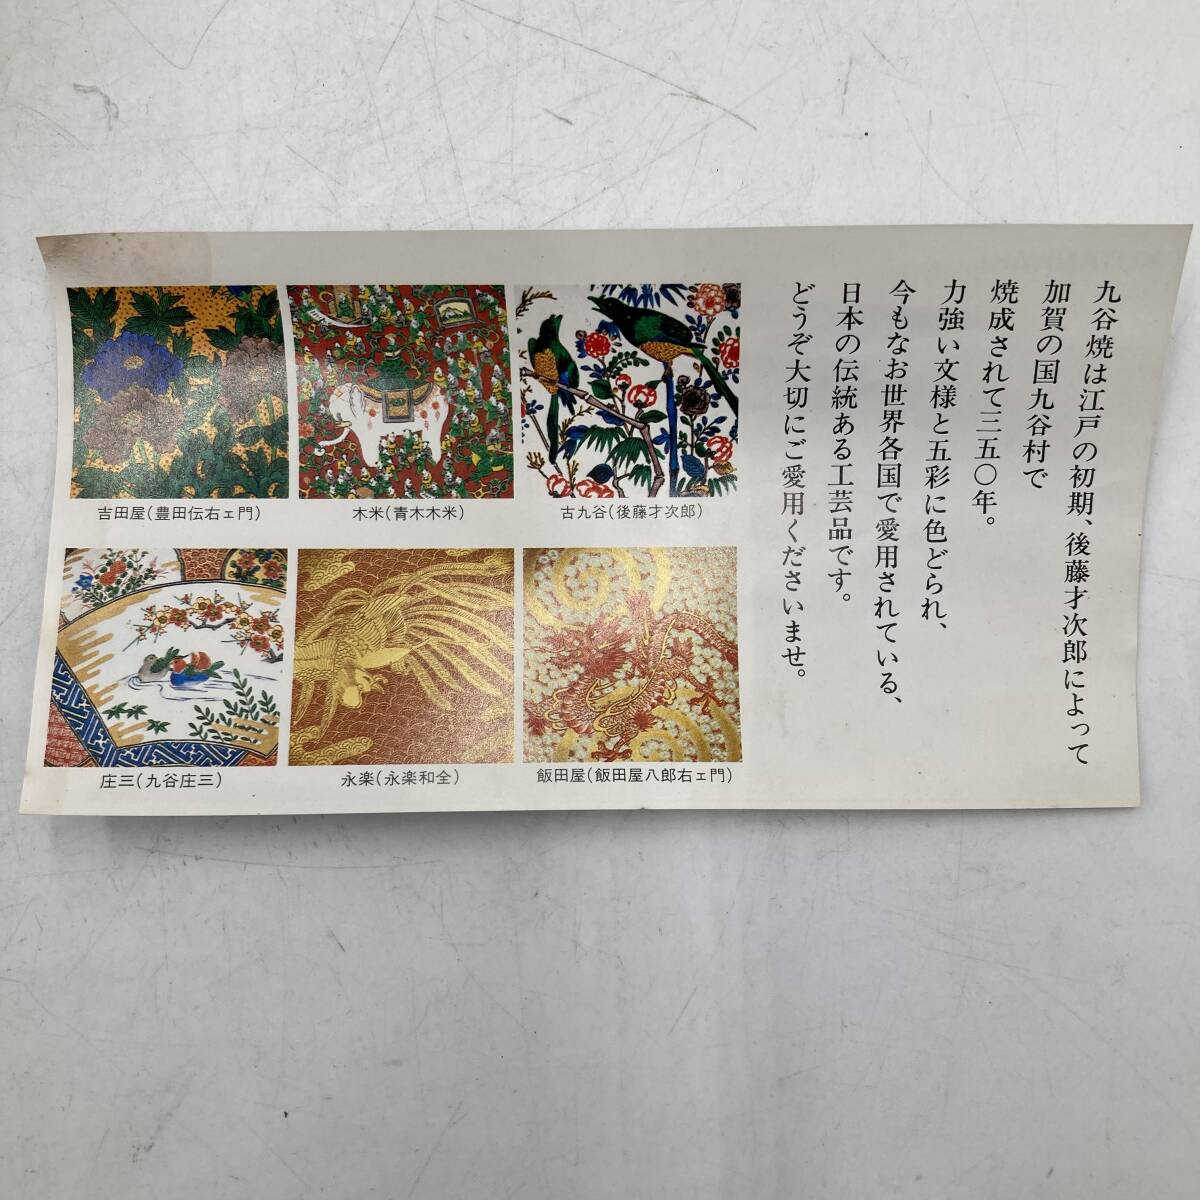 九谷焼は江戸の初期、後藤才次郎によって
加賀の国九谷村で
焼成されて三五〇年。
力強い文様と五彩に色どられ、
今もなお世界各国で愛用されている、
日本の伝統ある工芸品です。
どうぞ大切にご愛用くださいませ。
古九谷(後藤才次郎)
木米(青木木米)
吉田屋(豊田伝右ェ門)
飯田屋(飯田屋八郎右ェ門)
永楽(永楽和全)
庄三(九谷庄三)